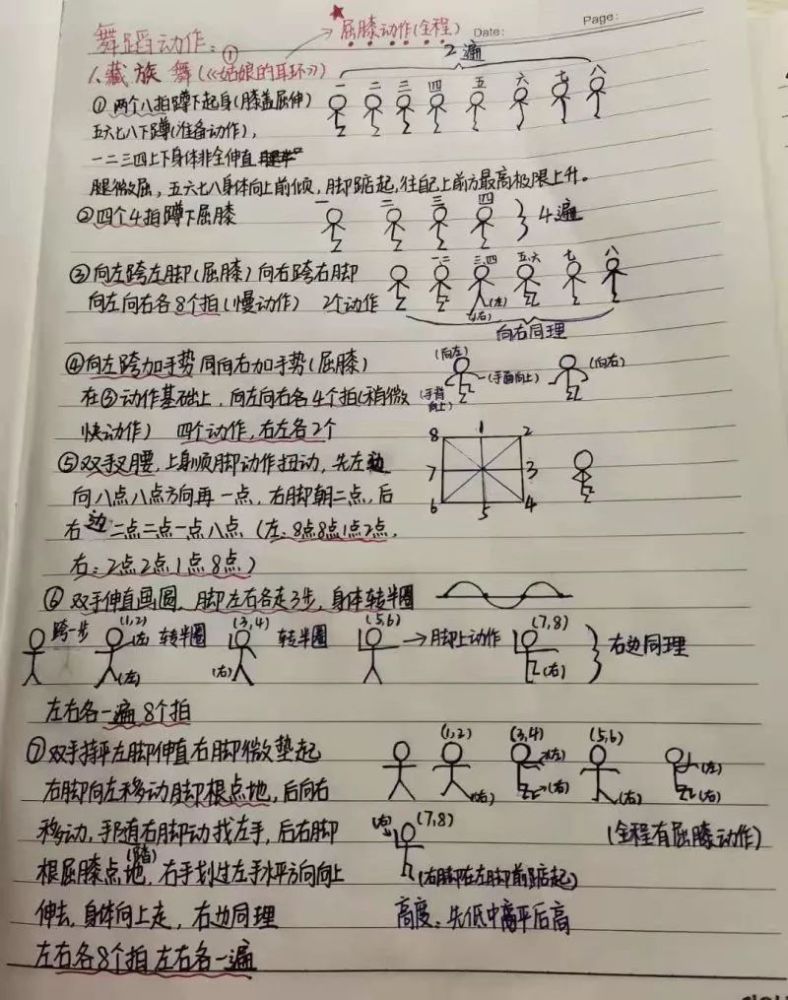 Date: Page:
舞蹈动作: ① → 屈膝动作(全程)
1、藏族舞(《姑娘的耳环》) 2遍
①两个八拍蹲下起身(膝盖屈伸) 一 二 三 四 五 六 七 八
五六七八下蹲(准备动作),
一二三四上下身体非全伸直
腿微屈,五六七八身体向上前倾,脚踮起,往自己上前方最高极限上升。
②四个4拍蹲下屈膝 一 二 三 四 4遍
③向左跨左脚(屈膝)向右跨右脚 一二 三、四 五、六 七 八
向左向右各8个拍(慢动作) 2个动作 (左) (右)
向右同理
④向左跨加手势同向右加手势(屈膝) (向左) (向右)
在③动作基础上,向左向右各4个拍(稍微 (手背向上) (手面向上)
快动作) 四个动作,右左各2个
8 1 2
⑤双手叉腰,上身顺脚动作扭动,先左边 7 3
向八点八点方向再一点,右脚朝二点,后 6 5 4
右边二点二点一点八点(左:8点8点1点2点,
右:2点2点1点8点)
⑥双手伸直画圆,脚左右各走3步,身体转半圈
跨一步 (1,2) (左) (左) 转半圈 (3,4) (右) 转半圈 (5,6) →脚上动作 (7,8) (右) 右边同理
左右各一遍 8个拍
⑦双手持平左脚伸直右脚微垫起 (1,2) (3,4) (5,6)
右脚向左移动脚根点地,后向右 (右) (左) (右) (右) (左) (右)
移动,手随右脚动找左手,后右脚 (7,8) (全程有屈膝动作)
根屈膝点地(踏),右手划过左手水平方向向上 (右脚在左脚前踮起)
伸去,身体向上走,右边同理 高度:先低中高平后高
左右各8个拍 左右各一遍